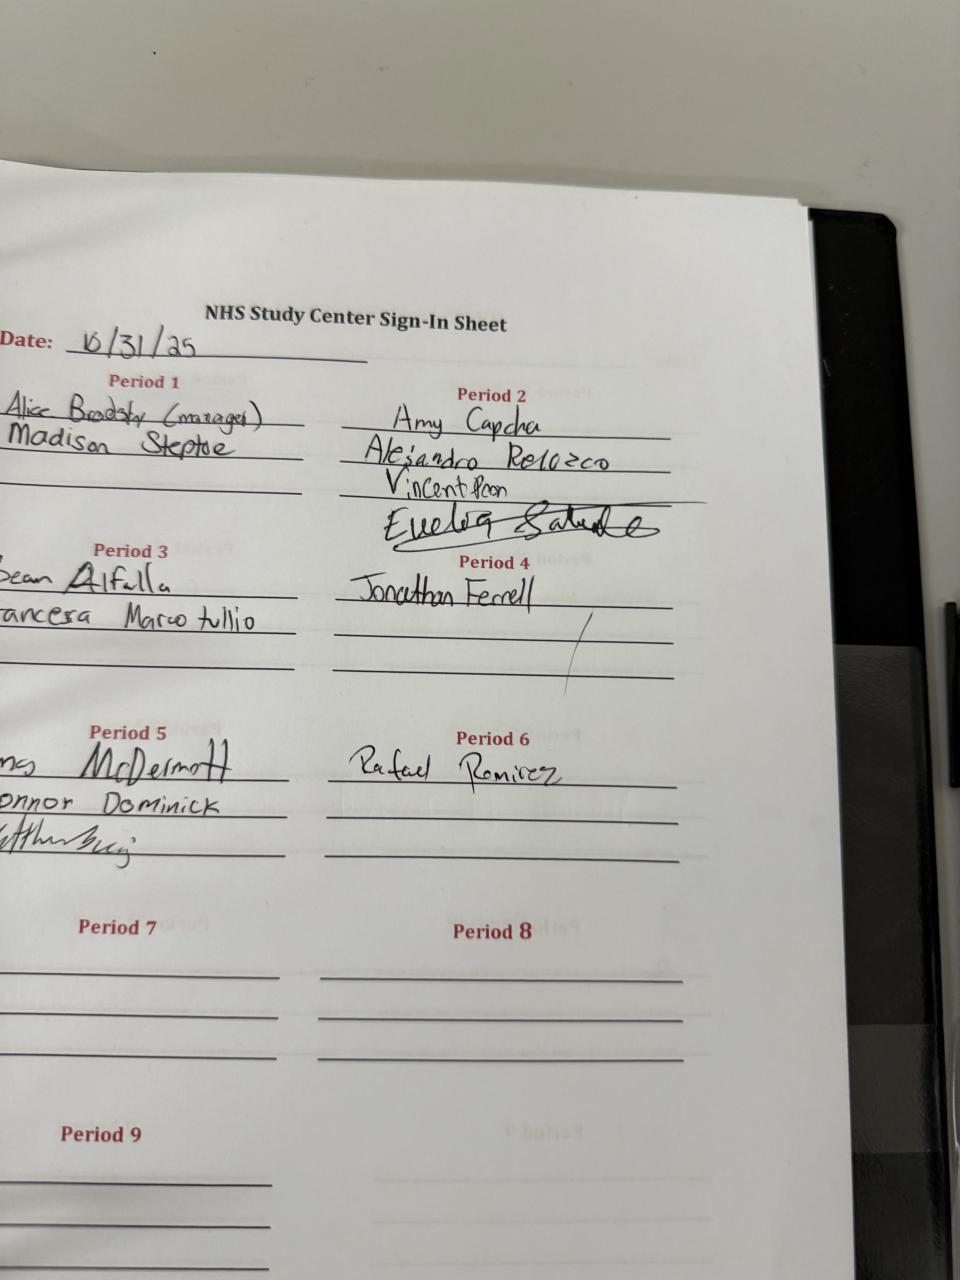 NHS Study Center Sign-In Sheet
Date: 10/31/25
Period 1
Alice (manager)
Madison Steptoe
Period 2
Amy Capcha
Alejandro Relozco
Vincent
Period 3
Alfalla
Marco tullio
Period 4
Jonathan Ferrell
Period 5
McDermott
onnor Dominick
Period 6
Rafael Ramirez
Period 7
Period 8
Period 9